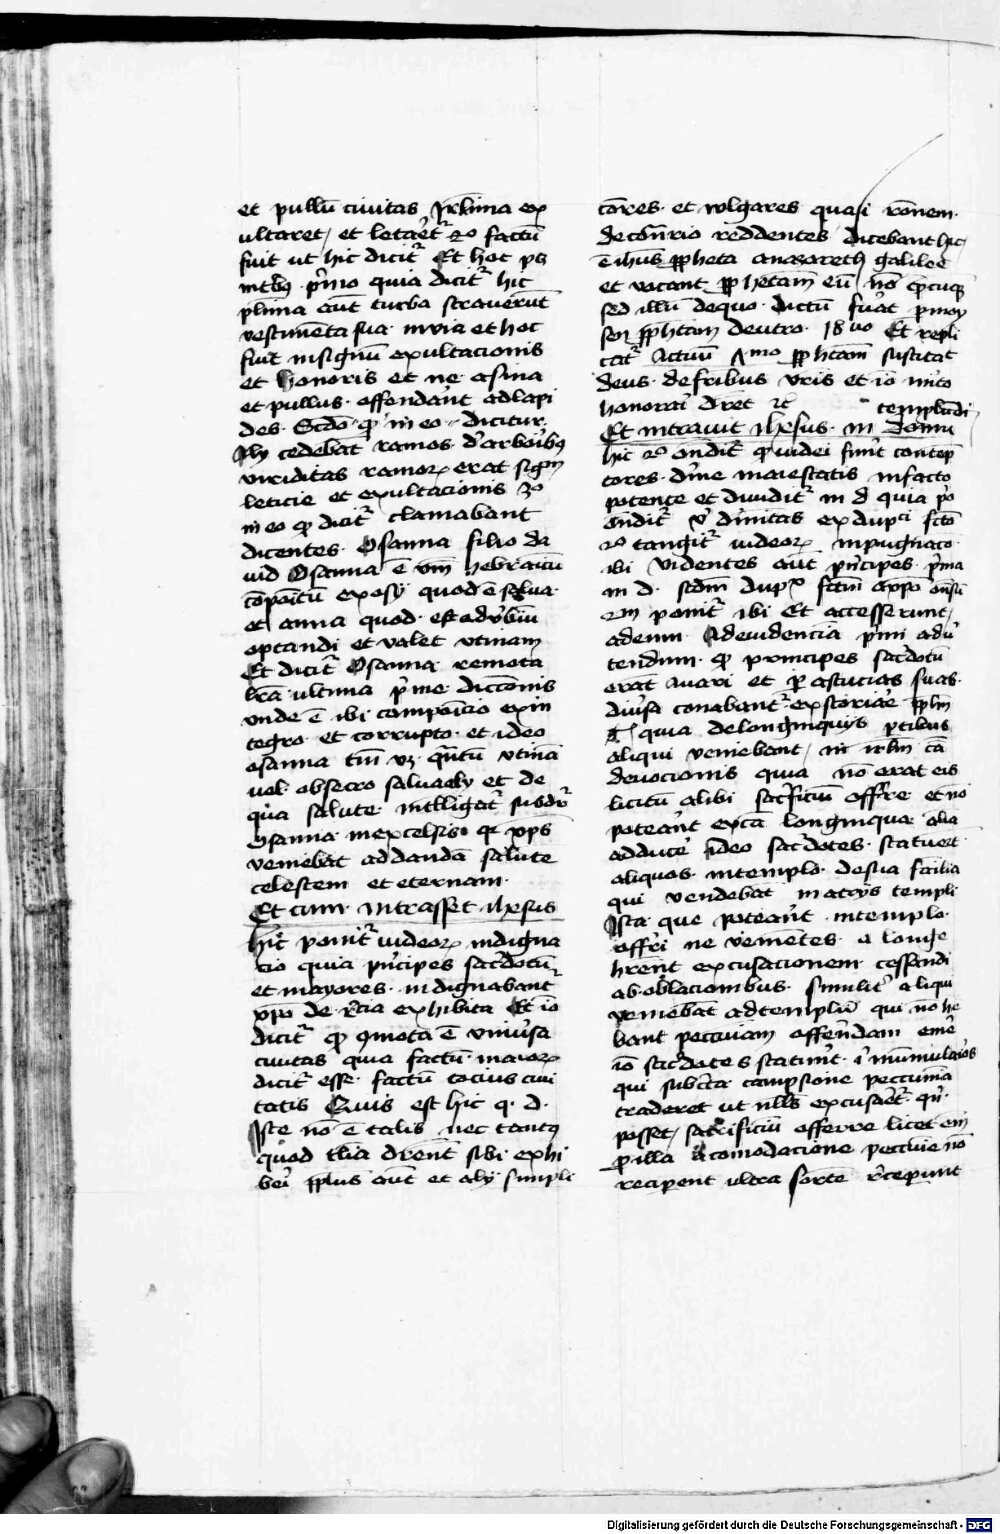 et pullū ciuitas Jrl̄ima ex
ultaret / et letaret᷑ 2º factū
fuit ut hic dicit᷑ Et hoc p
p̄mo quia dicit᷑ hic
plīma aūt turba strauerūt
vestimēta sua in via et hoc
fuit insignū exultacionis
et honoris et ne asina
et pullus offendant ad lapi
des Scd̄o qͦ in eo dicitur
Alij cedebāt ramos d' arborib9
viriditas ramoꝝ erat signū
leticie et exultacionis 3º
in eo qͦ dicit᷑ clamabant
dicentes Osanna filio da
uid Osanna ē vm̄ hebraicū
cōpoītū ex osy quod ē salua
et anna quod est adu̇biū
optandi et valet vtinam
Et dicit᷑ Osanna remota
lr̄a ultima p̄me dictōnis
vnde ē ibi compoīcio ex in
tegro et corrupto et ideo
osanna tm̄ vꝫ qn̄tū vtinā
uel obsecro salua et de
qua salute intelligat᷑ subdit᷑
Osanna in excelsis qꝛ xp̄s
veniebat ad dandā salutē
celestem et eternam
Et cum intrasset ihesus
hic ponit᷑ iudeoꝝ indigna
cio quia p̄ncipes sac̄dotū
et mayores indignabant᷑
xp̄o de r̄cia exhibita Et iō
dicit᷑ qͦ 9mota ē vniu̇sa
ciuitas quia factū maioꝝ
dicit᷑ esse factū tocius ciui
tatis Quis est hic q. d.
Iste nō ē talis nec tantꝰ
quod talia dr̄ent sibi exhi
beri pp̄lus aūt et alij simpli
ciores et wlgares quasi rōnem
de cōtrario reddentes dicebant hic
ē ihus p̄pheta a nazareth galilee
et vocant p̄phetam eū nō q̄cūqꝫ
sed illū de quo dictū fuāt p moy
sen p̄phetam deutro 18 uo Et repli
cat᷑ Actuū mo p̄phetam suscitat
deus de fr̄ibus vris et iō m̄ito
honorari dr̄et ⁊c̄
Et intrauit ihesus in domū templū di
hic 2º ondit᷑ qͦ iudei fuīt contep̄
tores diuīe maiestatis in facto
potencie et diuidit᷑ in d quia p̄o
ondit᷑ v̇ diuītas ex dupl̄ci fc̄o
2º tangit᷑ iudeoꝝ inpugnacō
ibi Videntes aūt p̄ncipes p̄ma
in d scd̄m dup̄x fc̄m a xp̄o
2m ponit᷑ ibi Et accesserunt
ad eum Ad euidenciā p̄mi adu̇
tendum qͦ principes sac̄dotū
erāt Auari et p astucias suas
diu̇sa conabant᷑ extorq̄re pp̄lm̄
quia de longinquis p̄tibus
aliqui veniebant in irl̄m cā
deuocionis quia nō erat eis
licitū alibi sac̄ficiū offerre et nō
poterant ex cā longinqua alia
adduce ideo sac̄dotes statuer̄t
aliquos in templo de sua familia
qui vendebāt in atrijs templi
Ista que poterant in templo
offr̄i ne veniētes a longe
hr̄ent excusacionem cessandi
ab oblacionibus similit᷑ aliqui
veniebāt ad templū qui nō he
bant pecuniam offerendam emē
iō sac̄dotes statuīt numulaīos
qui sub c̄ta campsione pecunia
traderet ut nll̄s excusaret᷑ qn̄
posset sacrificiū offerre licet em̄
p illa acomodacione pecunie nō
recipent ultra sortē r̄cepunt